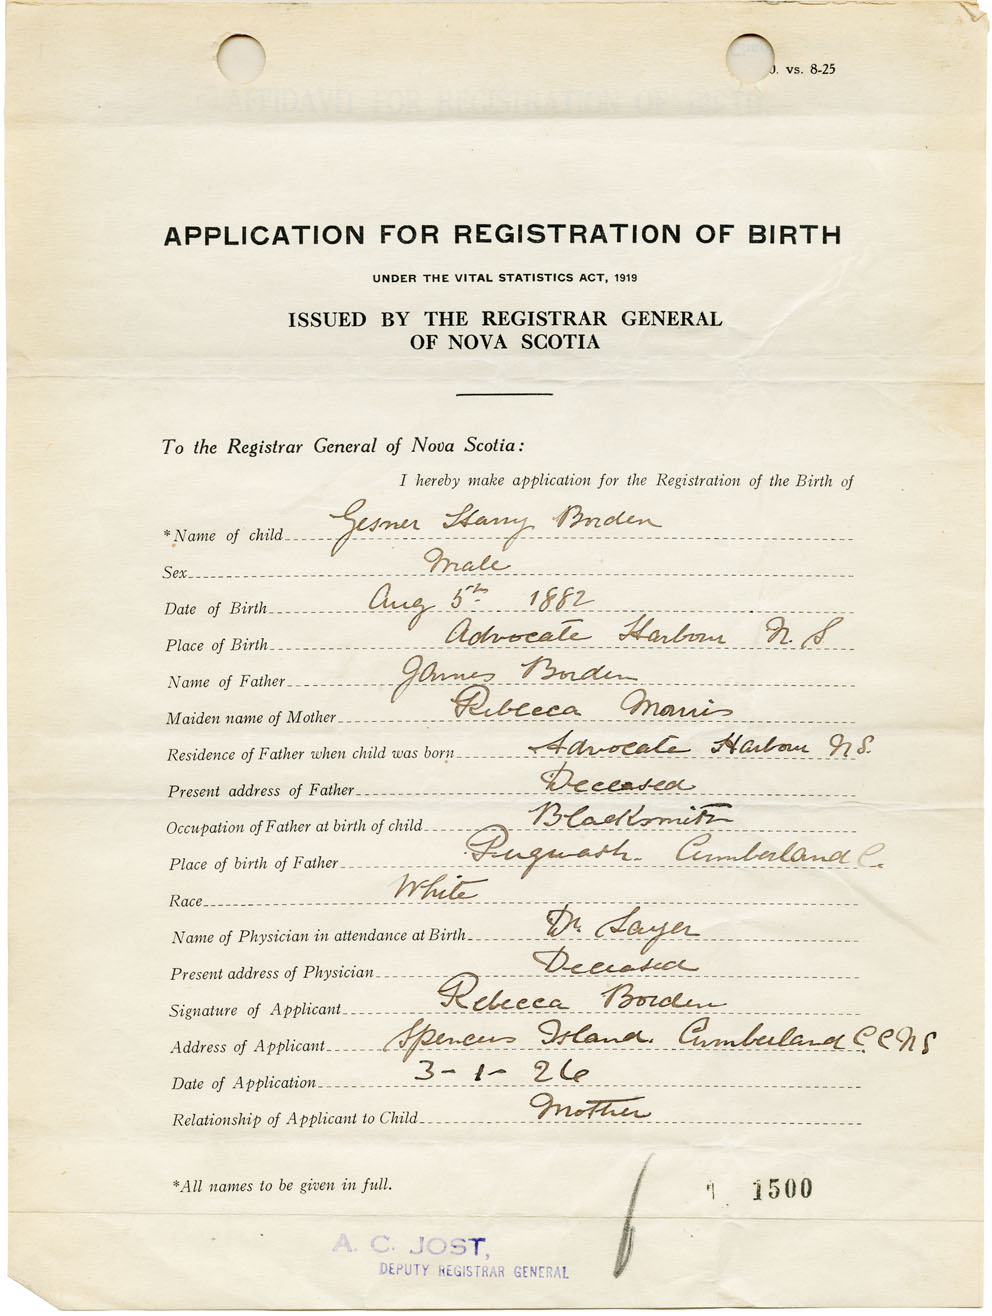 . vs. 8-25
APPLICATION FOR REGISTRATION OF BIRTH
UNDER THE VITAL STATISTICS ACT, 1919
ISSUED BY THE REGISTRAR GENERAL
OF NOVA SCOTIA
To the Registrar General of Nova Scotia:
I hereby make application for the Registration of the Birth of
*Name of child Gesner Harry Borden
Sex Male
Date of Birth Aug 5th 1882
Place of Birth Advocate Harbour N. S
Name of Father James Borden
Maiden name of Mother Rebecca Morris
Residence of Father when child was born Advocate Harbour N S.
Present address of Father Deceased
Occupation of Father at birth of child Blacksmith
Place of birth of Father Pugwash. Cumberland C.
Race White
Name of Physician in attendance at Birth Dr.
Present address of Physician Deceased
Signature of Applicant Rebecca Borden
Address of Applicant Spencers Island. Cumberland C. C N S
Date of Application 3-1-26
Relationship of Applicant to Child Mother
*All names to be given in full.
1500
A. C. JOST,
DEPUTY REGISTRAR GENERAL